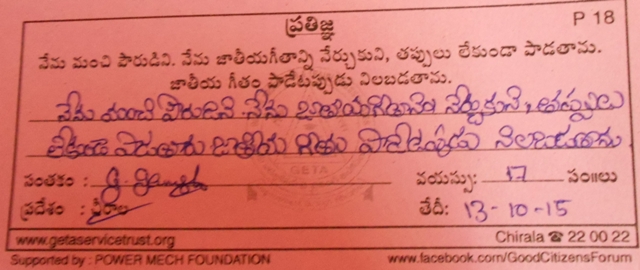 ప్రతిజ్ఞ P 18
నేను మంచి పౌరుడిని. నేను జాతీయగీతాన్ని నేర్చుకుని, తప్పులు లేకుండా పాడతాను.
జాతీయ గీతం పాడేటప్పుడు నిలబడతాను.
నేను మంచి పౌరుడిని. నేను జాతీయగీతాన్ని నేర్చుకుని, తప్పులు
లేకుండా పాడతాను జాతీయ గీతం పాడేటప్పుడు నిలబడుతాను.
GETA
సంతకం : వయస్సు: 17 సం॥లు
ప్రదేశం : చీరాల తేదీ: 13-10-15
www.getaservicetrust.org Chirala ☎ 22 00 22
Supported by : POWER MECH FOUNDATION www.facebook.com/GoodCitizensForum